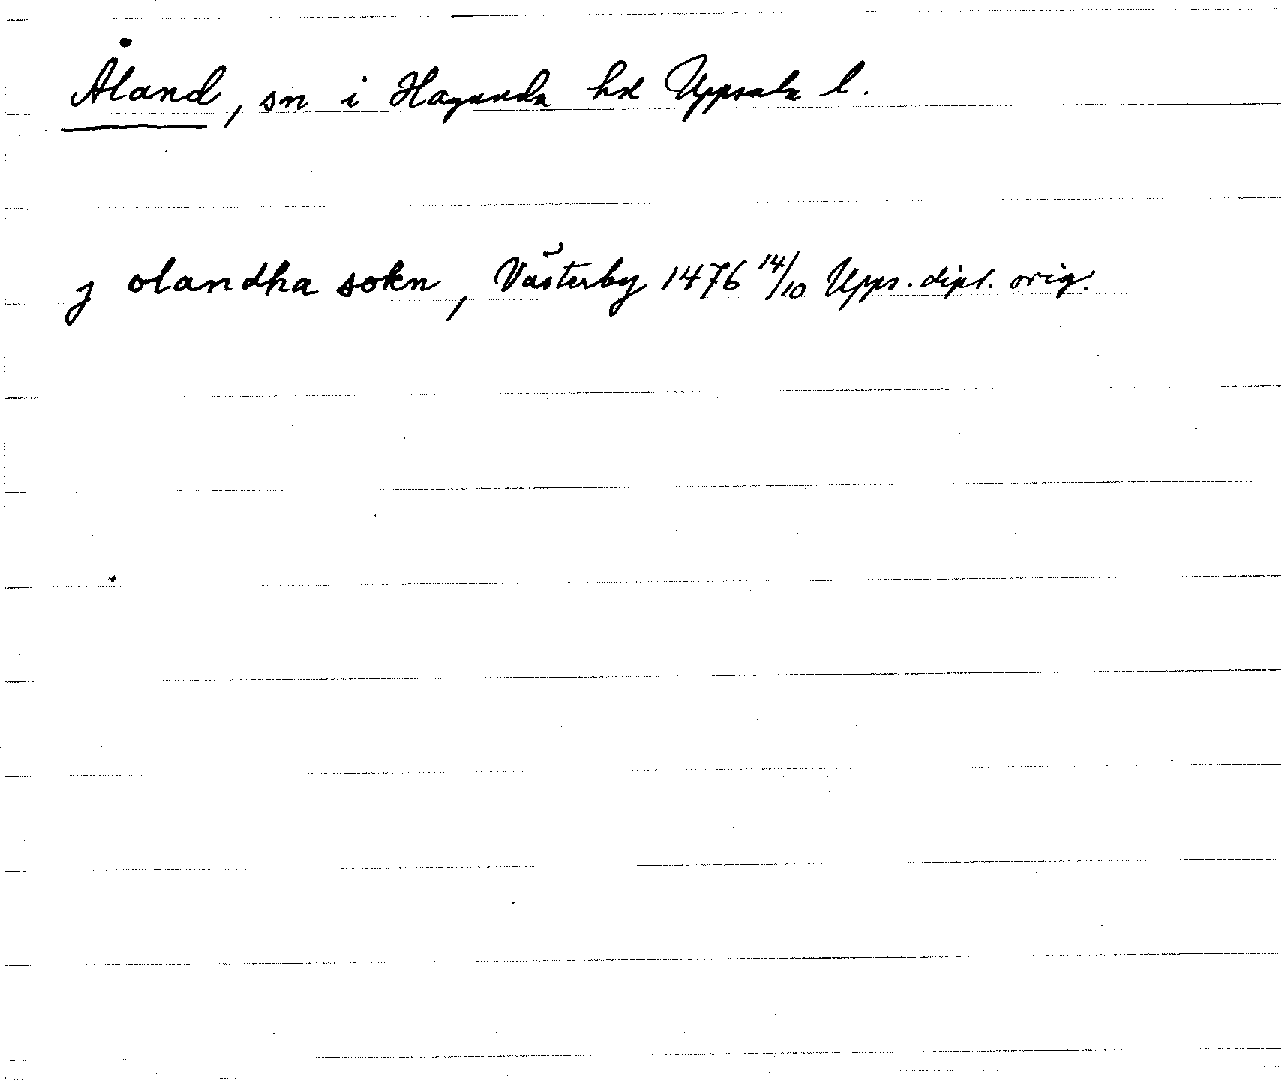 Åland, sn i Hagunda hd Uppsala l.
j olandha sokn, Västerby 1476 14/10 Upps. dipl. orig.